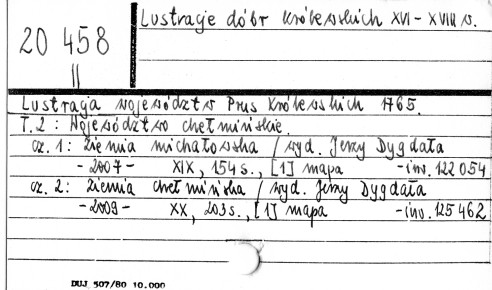 Lustracje dóbr królewskich XVI-XVIII w.
20 458
II
Lustracja województw Prus Królewskich 1765.
T. 2: Województwo chełmińskie.
cz. 1: Ziemia michałowska / wyd. Jerzy Dygdała
- 2007 - XIX, 154 s., [1] mapa - inw. 122 054
cz. 2: Ziemia chełmińska / wyd. Jerzy Dygdała
- 2009 - XX, 203 s., [1] mapa - inw. 125 462
DUJ 507/80 10.000